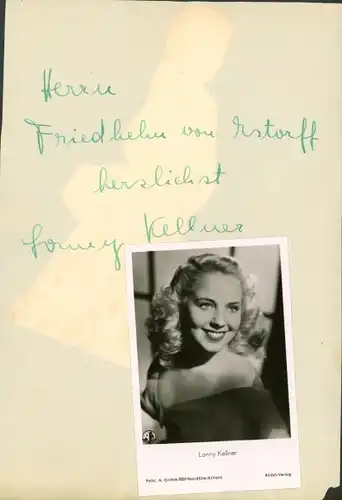 Herrn
Friedhelm von Estorff
herzlichst
Lonny Kellner
Lonny Kellner
Foto: A. Grimm/BBF-Nordfilm-Allianz
Rüdel-Verlag